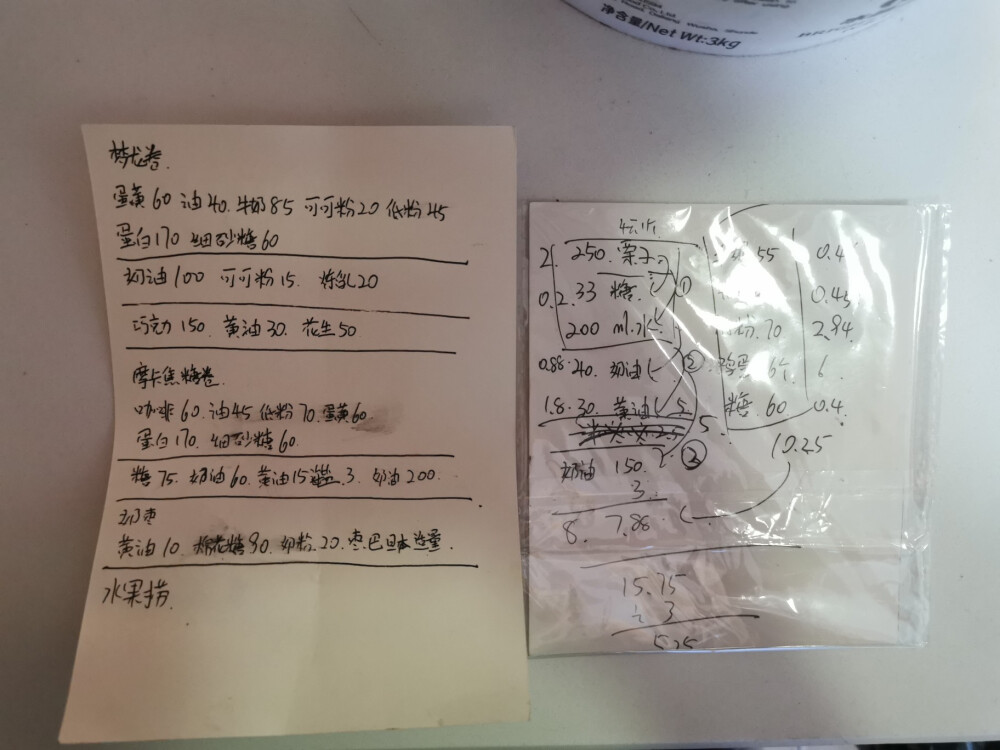 净含量/Net Wt:3kg
梦龙卷.
蛋黄60 油40. 牛奶85 可可粉20 低粉45
蛋白170 细砂糖60
奶油100 可可粉15. 炼乳20
巧克力150. 黄油30. 花生50
摩卡焦糖卷.
咖啡60. 油45 低粉70. 蛋黄60.
蛋白170. 细砂糖60.
糖75. 奶油60. 黄油15 盐.3. 奶油200.
奶枣
黄油10. 棉花糖90. 奶粉.20. 枣.巴旦木适量.
水果捞.
2. 250. 栗子
0.2. 33 糖. ①
200 ml.水
0.88. 20. 奶油 ②
1.8. 30. 黄油 5
奶油 150. ③
3.
8. 7.88.
55 0.4
0.45
粉.70 2.84
鸡蛋 6个 6.
糖. 60. 0.4.
10.25
15.75
÷ 3
5.25